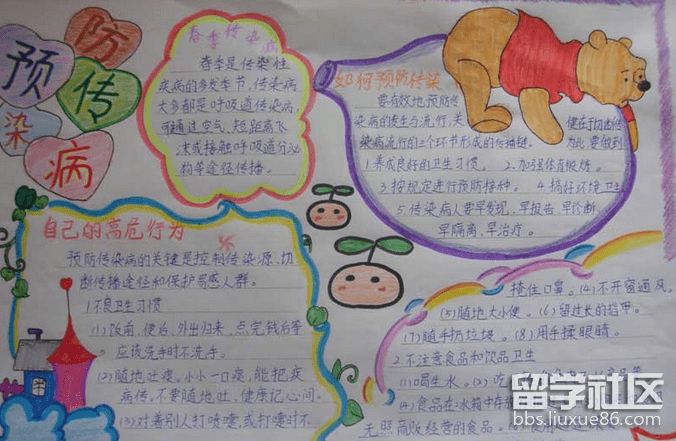 预防传染病
春季传染病
春季是传染性
疾病的多发季节,传染病
大多都是呼吸道传染病,
可通过空气、短距离飞
沫或接触呼吸道分泌
物等途径传播。
如何预防传染
要有效地预防传
染病的发生与流行,关
染病流行的三个环节形成的传播链。
为此,要做到
1.养成良好的卫生习惯。 2.加强体育锻炼。
3.按规定进行预防接种。 4.搞好环境卫生
5.传染病人要早发现、早报告、早诊断、
早隔离、早治疗。
自己的高危行为
预防传染病的关键是控制传染源、切
断传播途径和保护易感人群。
1.不良卫生习惯
(1)饭前、便后、外出归来、点完钱后等
应该洗手时不洗手。
(2)随地吐痰。小小一口痰,能把疾
病传,不要随地吐,健康记心间。
(3)对着别人打喷嚏,或打嚏时不
捂住口鼻。(4)不开窗通风。
(5)随地大小便。(6)留过长的指甲。
(7)随手扔垃圾。(8)用手揉眼睛。
2.不注意食品和饮品卫生
(1)喝生水。(2)吃
(4)食品在冰箱中存
无照商贩经营的食品。
留学社区
bbs.liuxue86.com